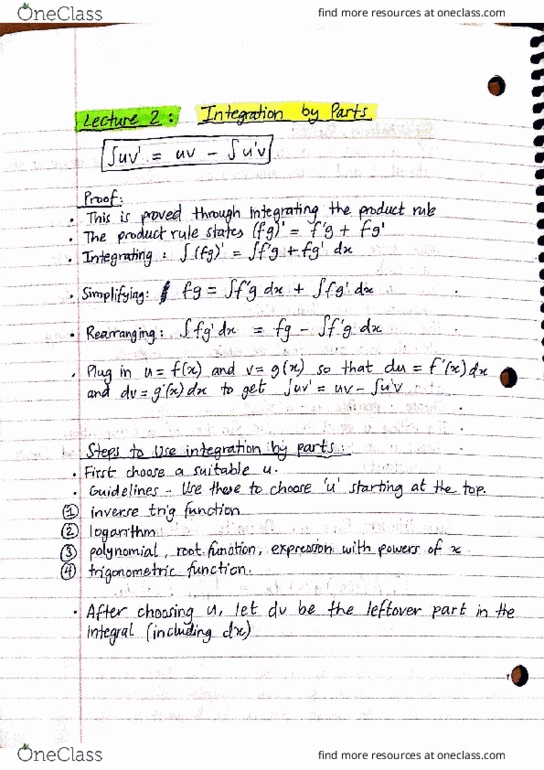 OneClass
find more resources at oneclass.com
Lecture 2: Integration by Parts
∫uv' = uv - ∫u'v
Proof:
• This is proved through integrating the product rule
• The product rule states (fg)' = f'g + fg'
• Integrating: ∫(fg)' = ∫f'g + fg' dx
• Simplifying: fg = ∫f'g dx + ∫fg' dx
• Rearranging: ∫fg' dx = fg - ∫f'g dx
• Plug in u = f(x) and v = g(x) so that du = f'(x) dx
and dv = g'(x) dx to get ∫uv' = uv - ∫u'v
Steps to use integration by parts:
• First choose a suitable u.
• Guidelines - Use these to choose 'u' starting at the top.
① inverse trig function
② logarithm
③ polynomial, root function, expression with powers of x
④ trigonometric function.
• After choosing u, let dv be the leftover part in the
integral (including dx)
OneClass
find more resources at oneclass.com